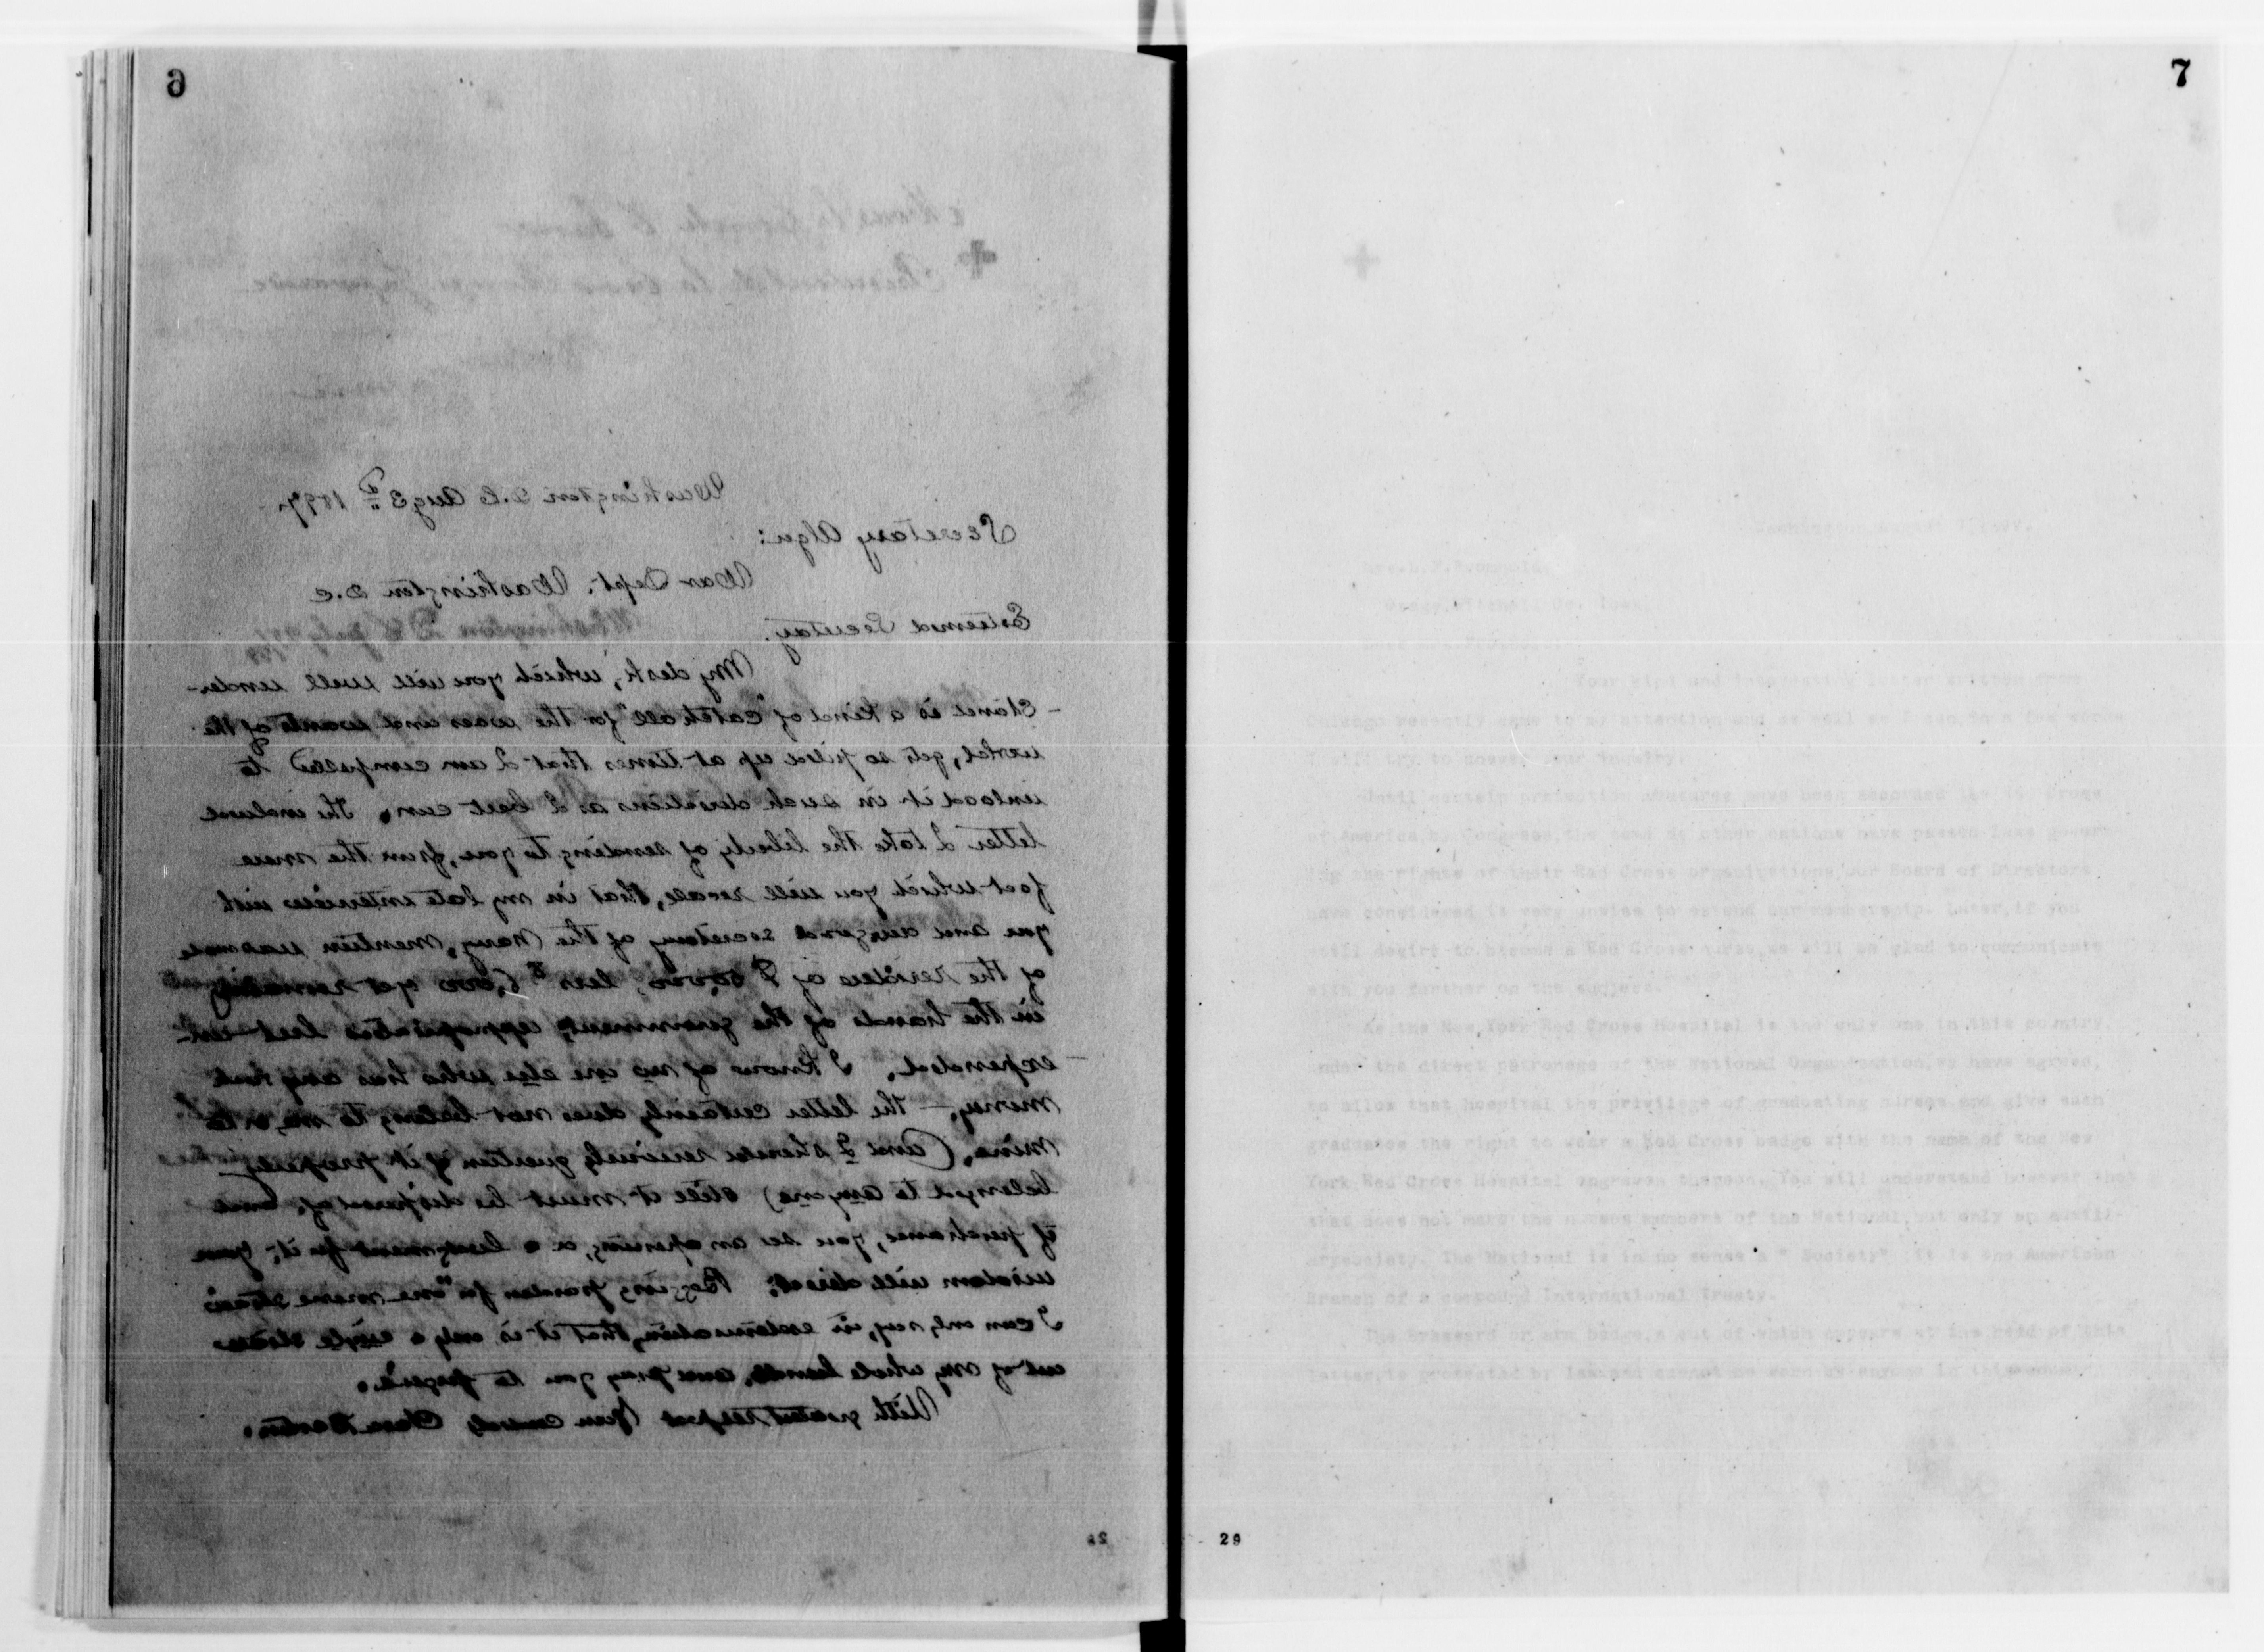 6
Washington D.C. Aug 3d 1897
Secretary Alger:
War Dept. Washington D.C.
Esteemed Secretary:
My desk, which you will well under-
-stand is a kind of "catch all" for the woes and wants of the
world, gets so piled up at times that I am compelled to
unload it in such directions as I best can. The inclosed
letter I take the liberty of sending to you, from the mere
fact which you will recall, that in my late interview with
you and Secretary of the Navy, mention was made
of the residue of $50,000 less $6,000 yet remaining
in the hands of the government, appropriated but not
expended. I know of no one else who has any such
money. - The letter certainly does not belong to me, or to
mine, (and I should seriously question if it properly
belonged to anyone) still it must be disposed of, and
if perchance, you see an opening, or a lodgment for it; your
wisdom will direct. Begging pardon for "one more straw"
I can only say, in extenuation, that it is only a single straw
out of my whole bundle, and pray you to forgive.
With greatest respect Yours sincerely Clara Barton.
7
Your kind and interesting letter written from
Chicago recently came to my attention and as well as I can, in a few words
I will try to answer your inquiry.
Until certain protective measures have been accorded the Red Cross
of America by Congress, the same as other nations have passed laws gover-
ing the rights of their Red Cross organizations, our Board of Directors
have considered it very unwise to extend our membership. Later, if you
still desire to become a Red Cross nurse, we will be glad to communicate
with you further on the subject.
As the New York Red Cross Hospital is the only one in this country,
under the direct patronage of the National Organization, we have agreed,
to allow that hospital the privilege of graduating nurses and give such
graduates the right to wear a Red Cross badge with the name of the New
York Red Cross Hospital engraved thereon. You will understand however that
that does not make the nurses members of the National, but only an auxili-
ary society. The National is in no sense a " Society" it is the American
Branch of a compound International Treaty.
The Brassard or arm badge, a cut of which appears at the head of this
letter, is protected by law and cannot be worn by anyone in this
29